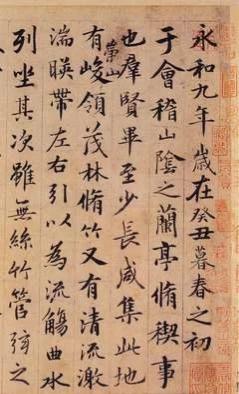 永和九年歲在癸丑暮春之初
于會稽山陰之蘭亭脩禊事
也羣賢畢至少長咸集此地
有崇山峻領茂林脩竹又有清流激
湍暎帶左右引以為流觴曲水
列坐其次雖無絲竹管弦之